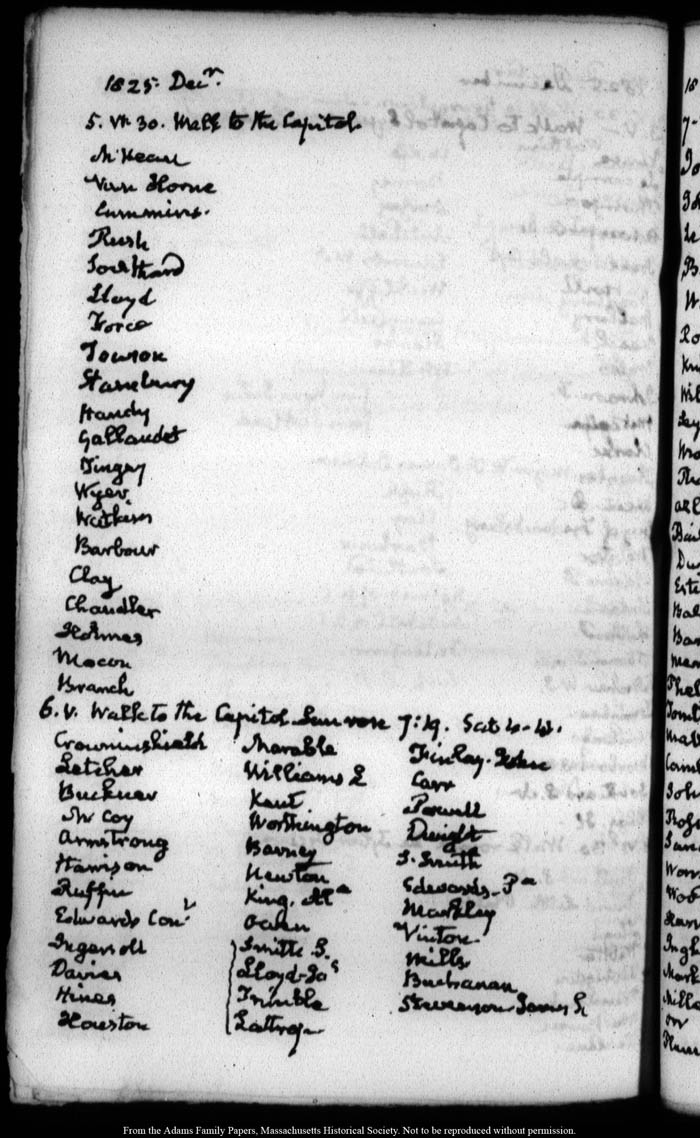 1825. Decr.
5. VI. 30. Walk to the Capitol
McKean
Van Horne
Cummins.
Rush
Southard
Lloyd
Force
Towson
Stansbury
Handy
Gallaudet
Tingey
Wyer.
Watkins
Barbour
Clay
Chandler
Holmes
Macon
Branch
6. V. Walk to the Capitol Sun rose 7:19. Set 4-41.
Crowninshield
Letcher
Buckner
McCoy
Armstrong
Harrison
Ruffin
Edwards Cont
Ingersoll
Davies
Hines
Houston
Marable
Williams L
Kent
Worthington
Barney
Newton
King. Ala
Owen
Smith S.
Lloyd-Jas
Trimble
Lathrop
Finlay-John
Carr
Powell
Dwight
S. Smith
Edwards-Pa
Markley
Vinton
Mills
Buchanan
Stevenson James S.
From the Adams Family Papers, Massachusetts Historical Society. Not to be reproduced without permission.